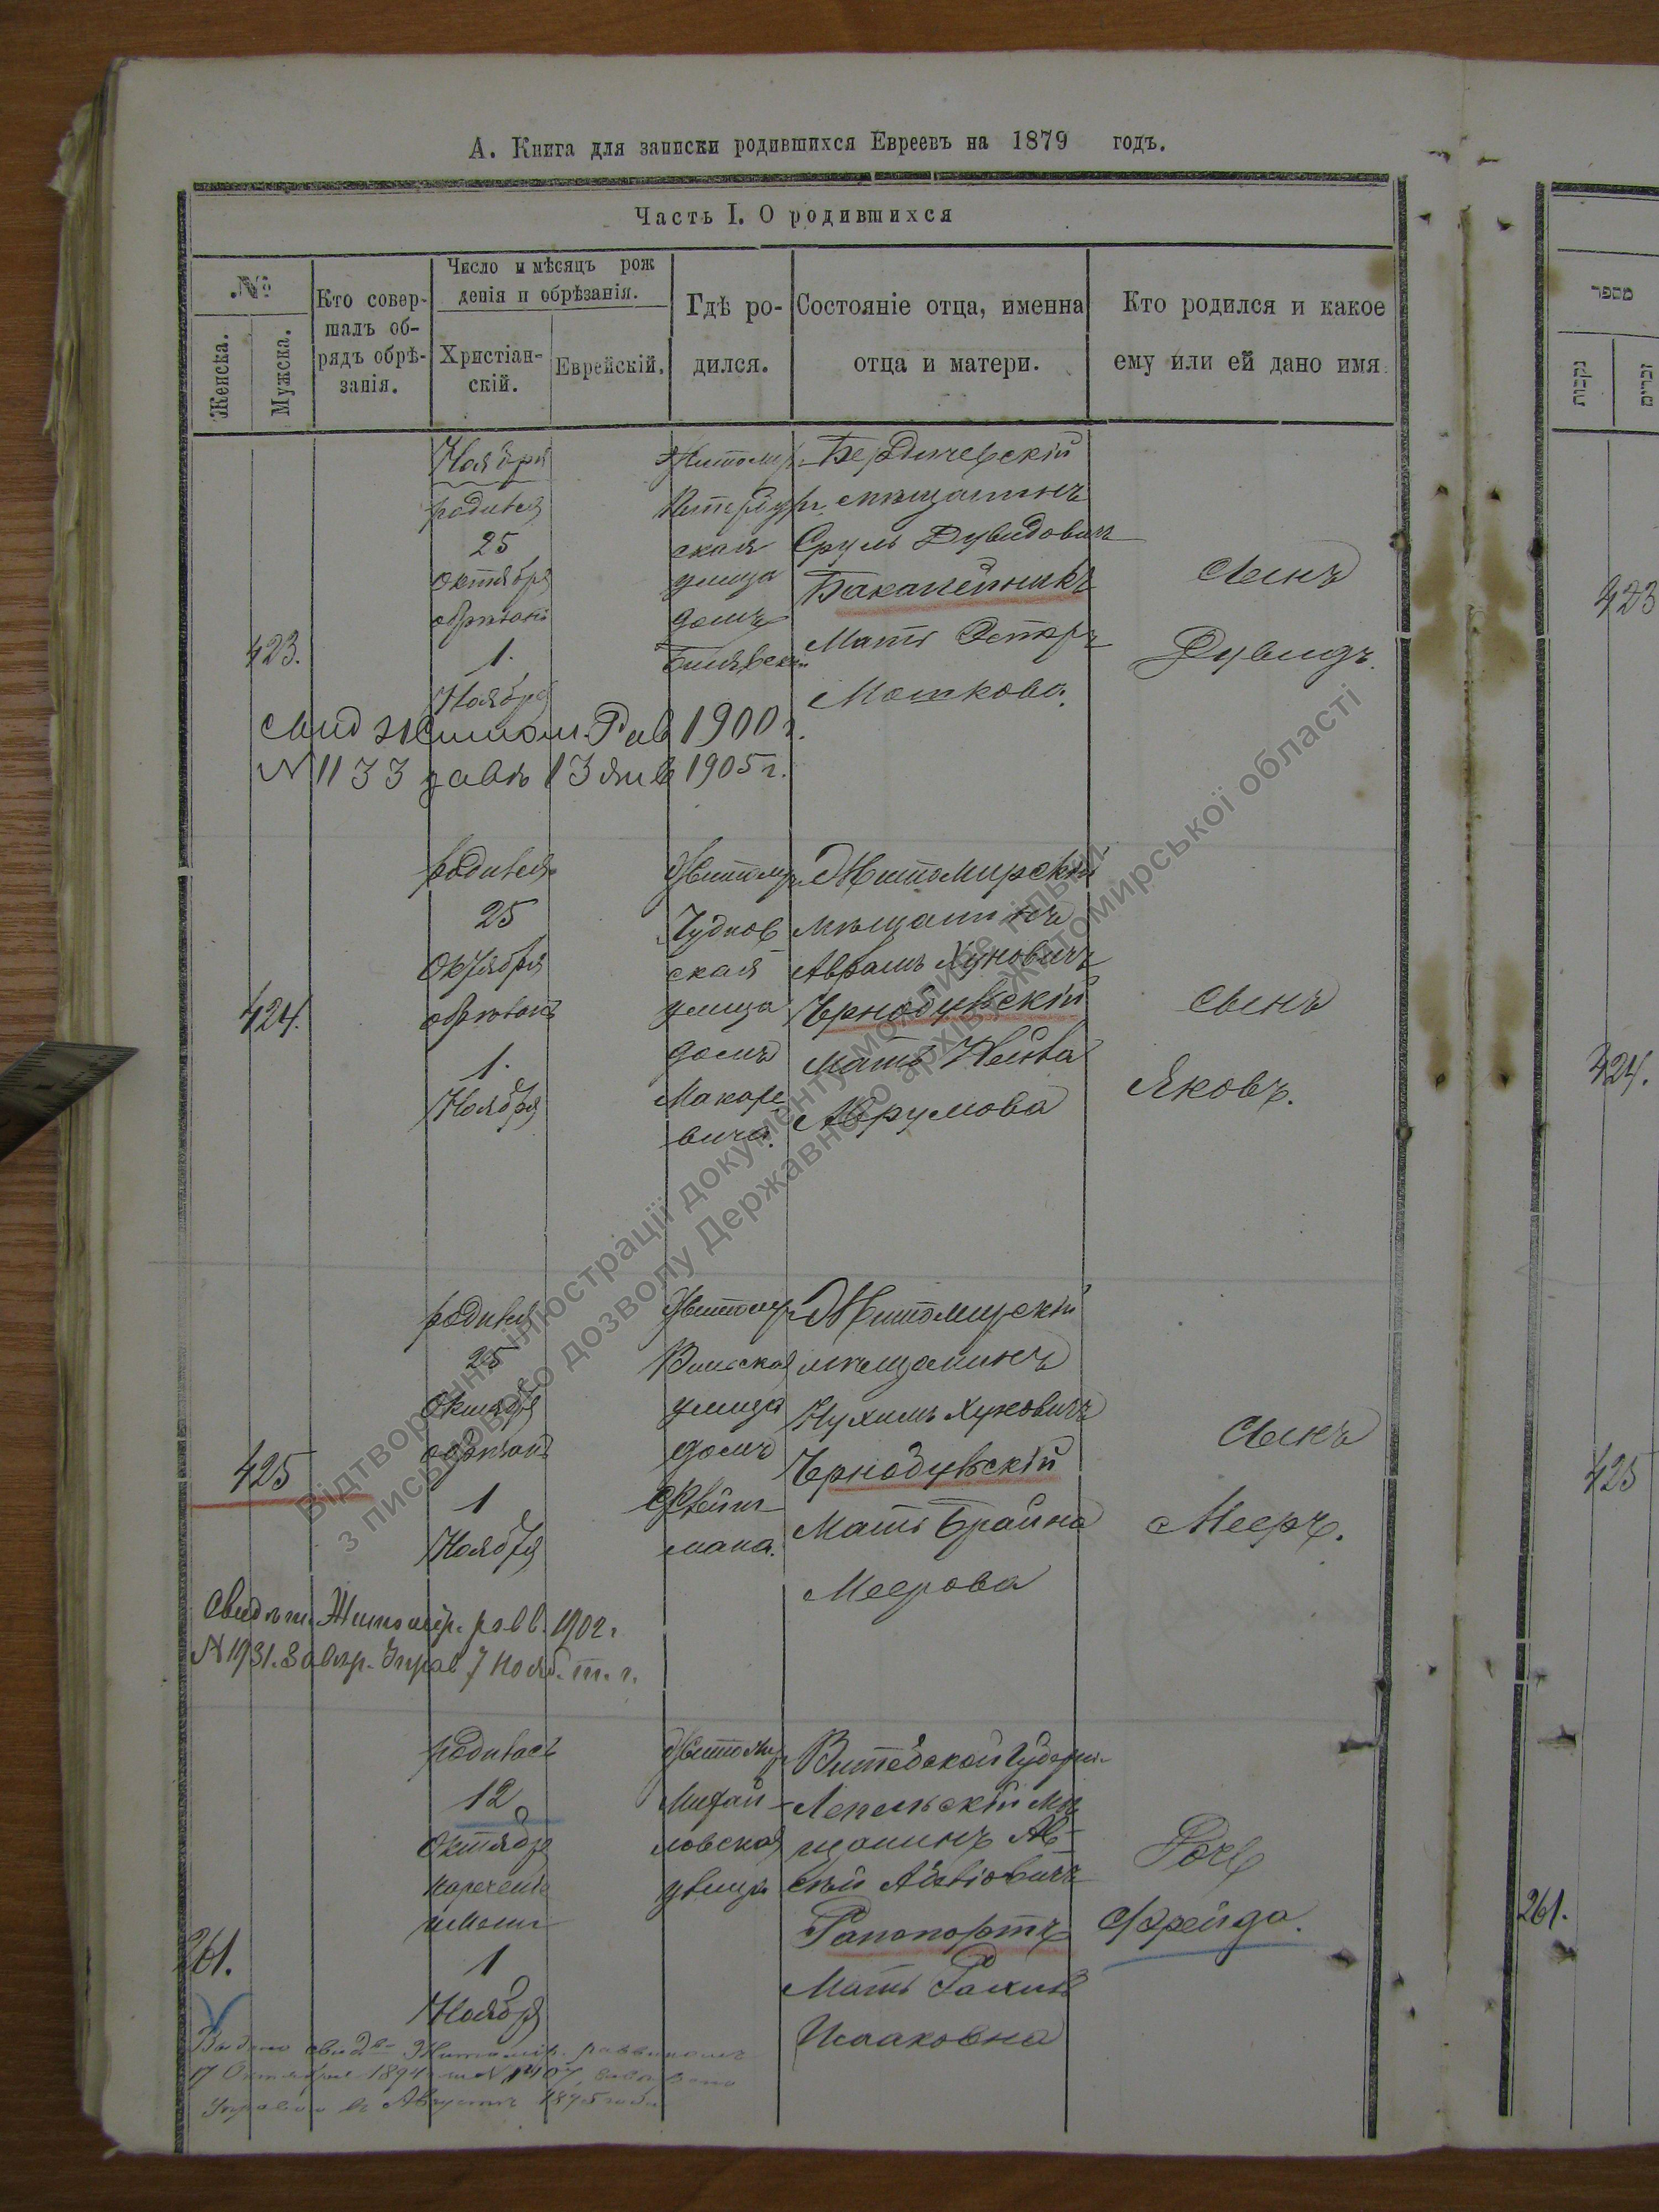 А. Книга для записки родившихся Евреевъ на 1879 годъ.
Часть I. О родившихся
№
Женска.
Мужска.
Кто совер-
шалъ об-
рядъ обрѣ-
занія.
Число и мѣсяцъ рож
денія и обрѣзанія.
Христіан-
скій.
Еврейскій.
Гдѣ ро-
дился.
Состояніе отца, именна
отца и матери.
Кто родился и какое
ему или ей дано имя.
מספר
נקבות
זכרים
423.
Ноября
родился
25
октября
обрѣзанъ
1.
Ноября
Житомир
Петербург
ская
улица
домъ
Бердичевскій
мѣщанинъ
Сруль Дувидовичъ
Бакалейникъ
Мать Эстеръ
Мошкова.
Сынъ
Дувидъ.
423
Свид Житом. Рав 1900 г.
N 1133 завѣ 13 янв 1905 г.
424.
родился
25
Октября
обрѣзанъ
1.
Ноября
Житомир
Чуднов
ская
улица
домъ
Макаре
вича.
Житомирскій
мѣщанинъ
Аврамъ Хуновичъ
Чернобуевскій
Мать Нейва
Аврумова
Сынъ
Яковъ.
424.
425
родился
25
Октября
обрѣзанъ
1
Ноября
Житомир
Вильская
улица
домъ
мана.
Житомирскій
мѣщанинъ
Нухимъ Хуновичъ
Чернобуевскій
Мать Брайна
Меерова
Сынъ
Мееръ.
425
Свидѣт. Житомір. равв. 1902 г
N 1931. Завѣр. Управ 7 Нояб. т. г.
261.
родилась
12
Октября
наречена
имени
1
Ноября
Житомир
Михай-
ловская
улица
Витебской Губерн.
Лепельскій мѣ
щанинъ
Рапопортъ
Мать
Исааковна
Дочь
Фрейда.
261.
Выдано свид. Житомір. раввиномъ
17 Октября 1894
Управою въ Августѣ 1895 года
Відтворення ілюстрації документу можливе тільки
з письмового дозволу Державного архіву Житомирської області